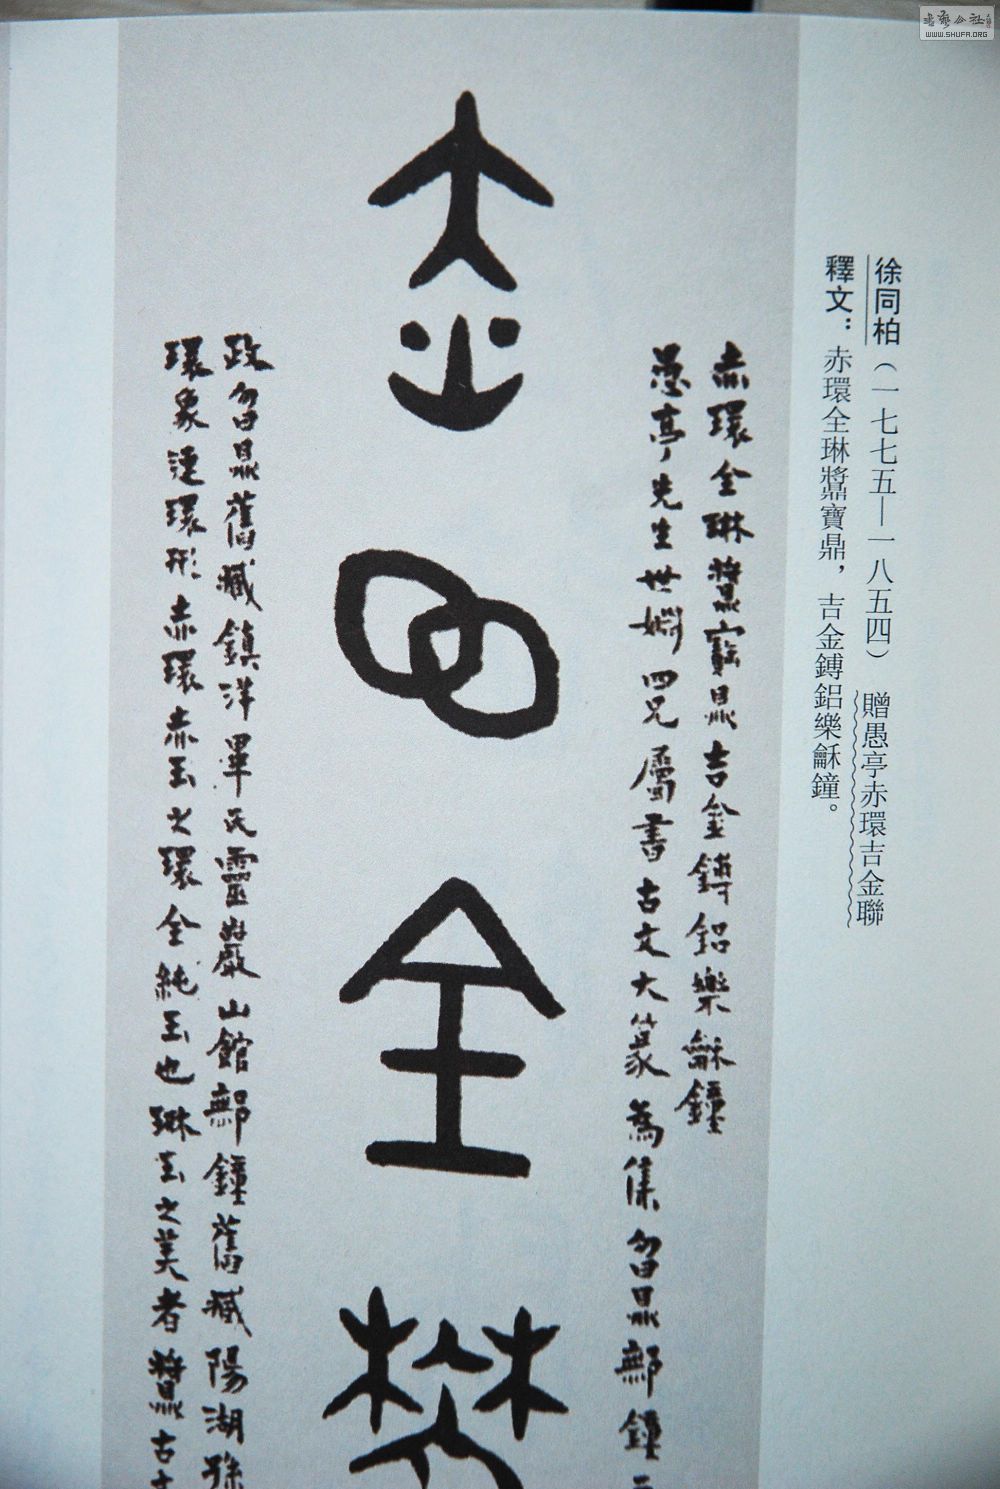 徐同柏（一七七五—一八五四） 贈愚亭赤環吉金聯
釋文：赤環全琳䵼鼎寶鼎，吉金鎛鋁樂龢鐘。
赤環全琳䵼寶鼎吉金鎛鋁樂龢鐘
愚亭先生世嫻四兄屬書古文大篆為集曶鼎郘鐘
赤環全琳
政曶鼎舊臧鎮洋畢氏靈巖山館郘鐘舊臧陽湖孫
環象連環形赤環赤玉之環全純玉也琳玉之美者䵼古
WWW.SHUFA.ORG